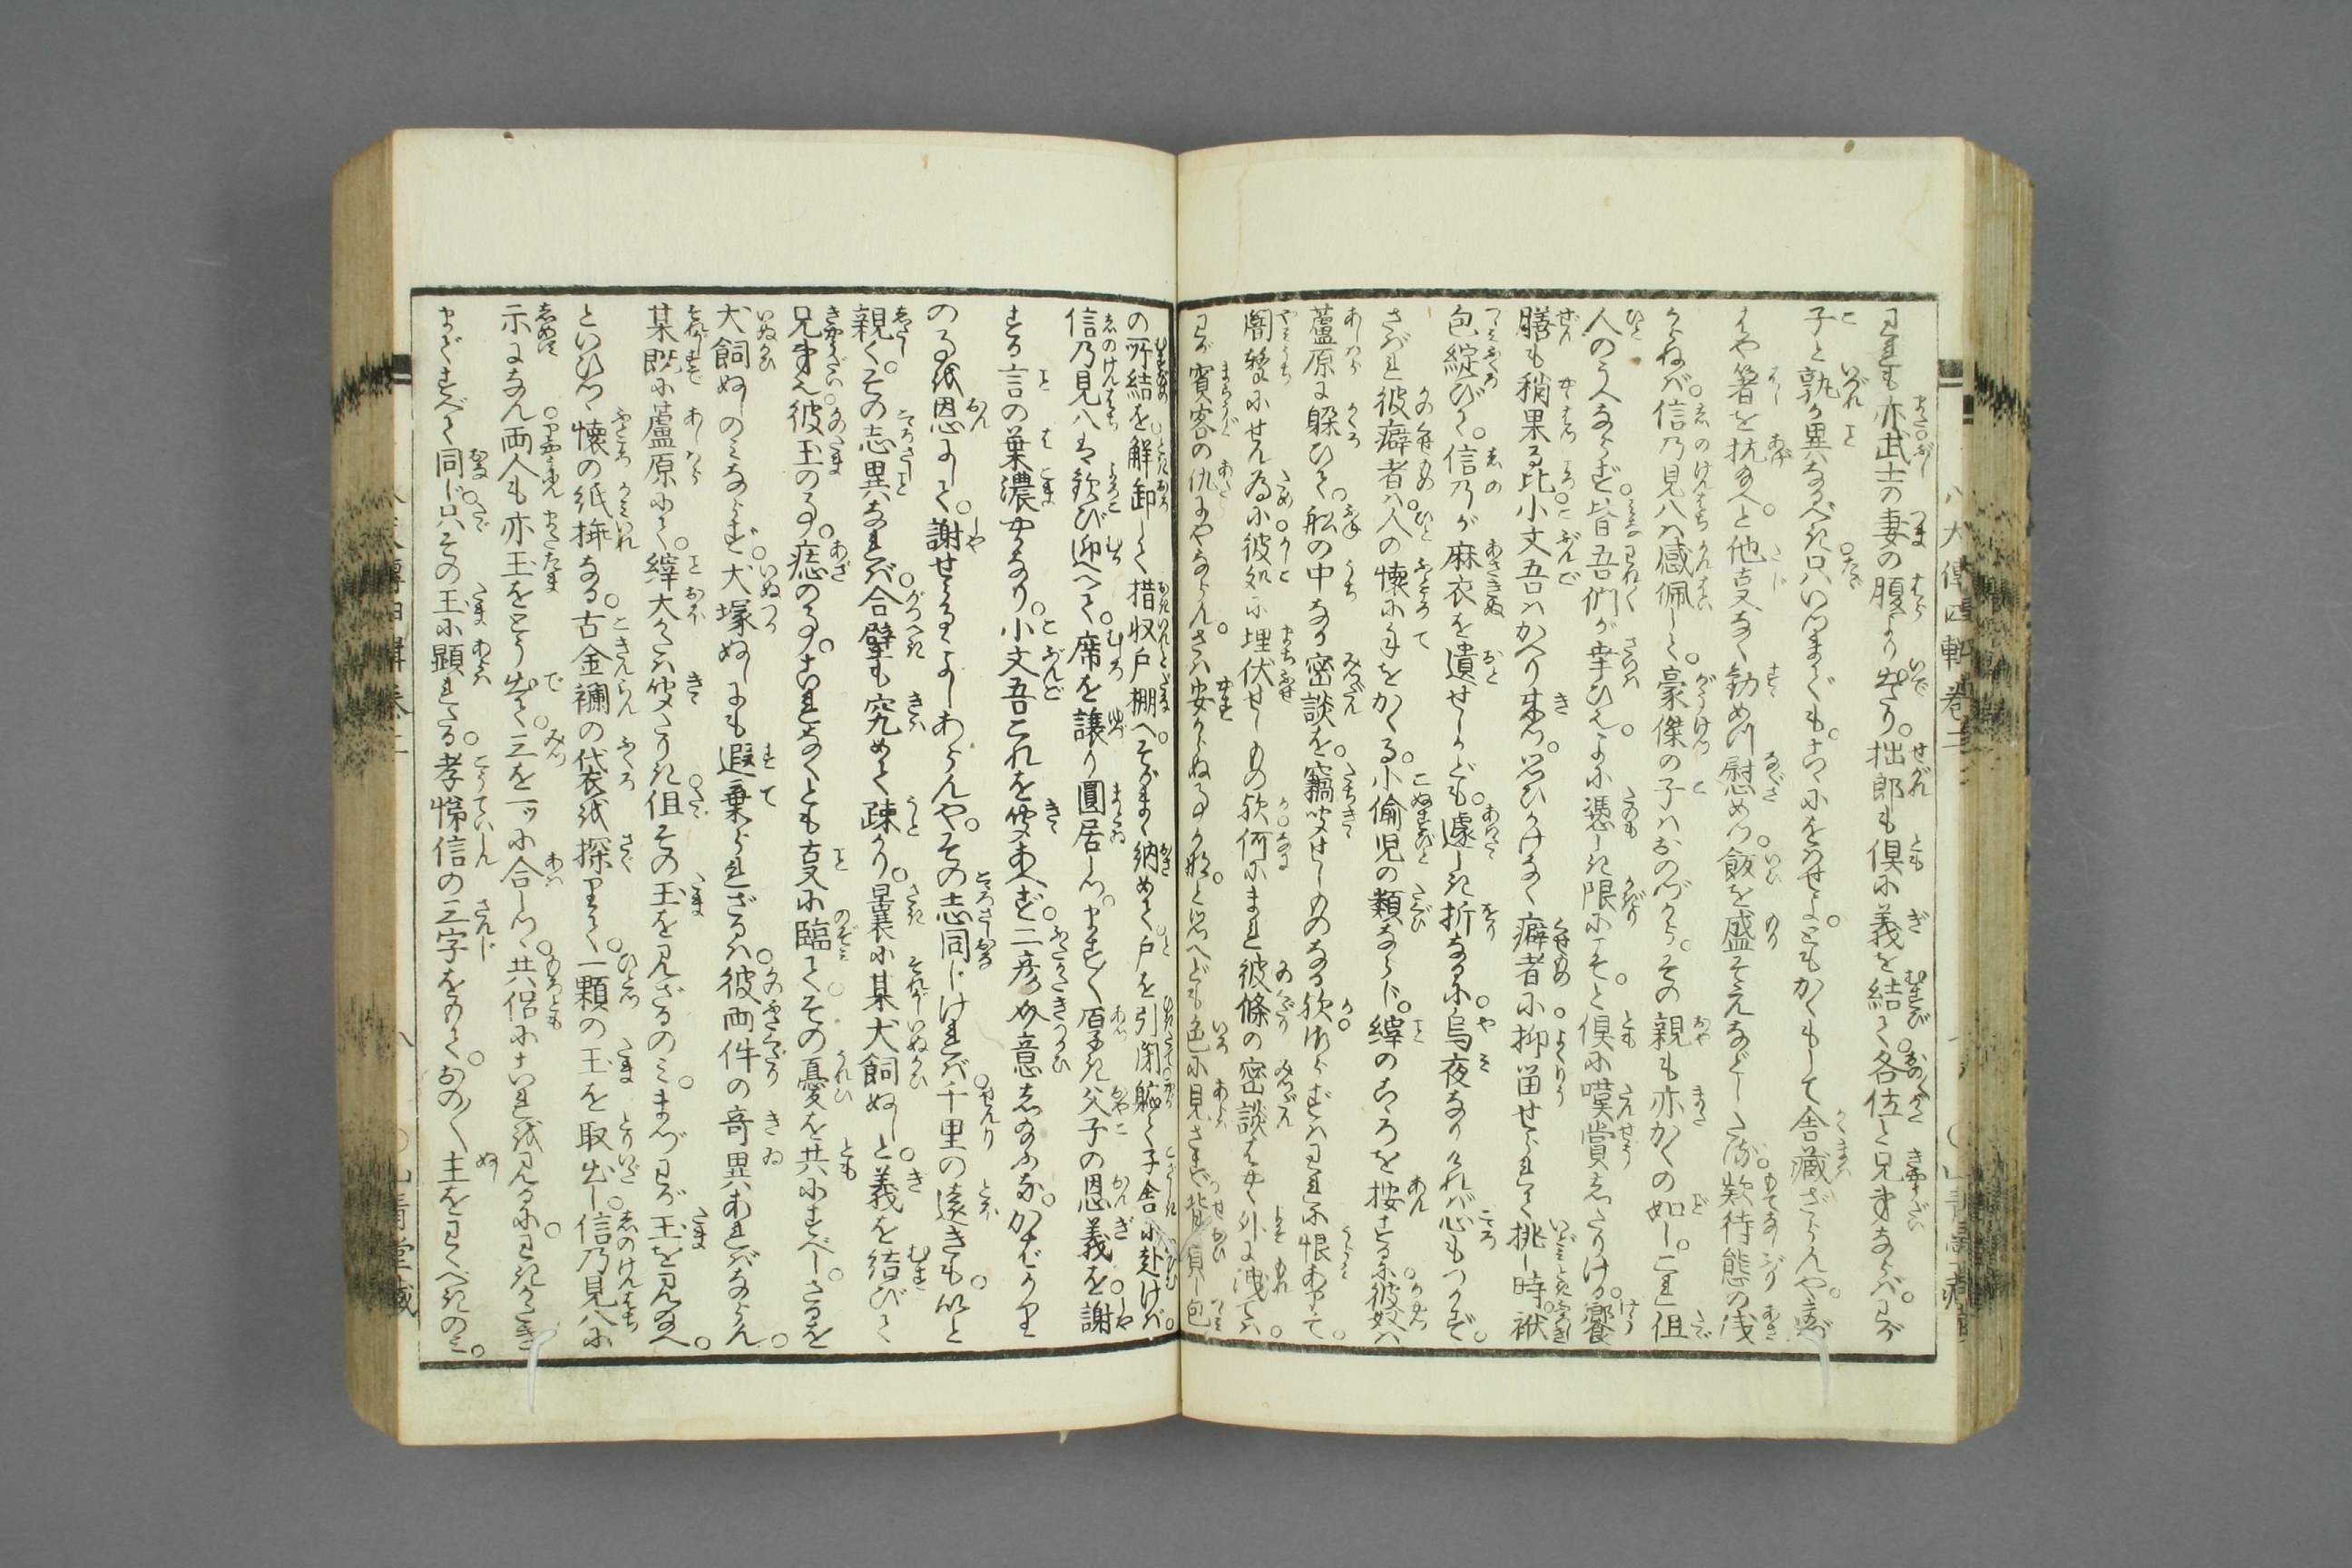 われも亦武士の妻の腹より出たり。拙郎も倶に義を結びて各位と兄弟ならば。わが
子と孰か異なるべき。只いつまでも。こゝにをはせよ。ともかくもして舎蔵ざらんや。
はや箸を抗給へと他事なく勧め慰めつ。飯を盛そえなどしたる。款待態の浅
からねば。信乃見八は感佩して。豪傑の子はおのづから。その親も亦かくの如し。これ但
人のうへならず。皆吾們が幸ひ也。よに憑しき限にこそと倶に嘆賞したりける。饗
膳も稍果る比小文吾はかへり来つ。思ひかけなく癖者に抑留せられて挑し時。袱
包綻びて。信乃が麻衣を遺せしかども。遽しき折なるに。烏夜なりければ心もつかず。
されば彼癖者は人の懐に手をかくる。小偸児の類ならじ。縡のこゝろを按ずるに彼奴は
蘆原に躱ひて。舩の中なる密談を。竊聞せしものなる歟。しからずはわれに恨あつて。
闇撃にせん為に彼処に埋伏せしもの歟。何にまれ彼條の密談もし外に洩ては。
わが賓客の仇にやならん。さは安からぬ事か那。と思へども色に見さず背負し包
の所結を解卸して措収戸棚へそがまゝ納めて戸を引閉軈て子舎に赴けば。
信乃見八は歓び迎へて。席を譲り圓居しつ。まづ厚き父子の恩義を謝
する言の葉濃やかなり。小文吾これを聞あへず。二君の意しかなり。かばかり
の事を恩にして。謝せらるゝよしあらんや。その志同じければ千里の遠きも。以と
親く。その志異なれば合壁も究めて疎かり。曩に某犬飼ぬしと。義を結びて
兄弟也。彼玉の事。痣の事。これなくとも事に臨てその憂を共にすべし。さるを
犬飼ぬしのみならず。犬塚ぬしにも遐棄られざるは。彼両件の奇異あればならん。
某既に蘆原にて。縡大かたは聞たりき。但その玉を見ざるのみ。まづわが玉を見給へ。
といひつゝ懐の紙挿なる。古金襴の袋を探りて。一顆の玉を取出し。信乃見八に
示すになん両人も亦玉をとり出て。三を一ツに合しつゝ。共侶にこれを見るに。わきがたき
まですべて同じ。只その玉に顕れたる。孝悌信の三字をのみて。おの〳〵主をわくべきのみ。